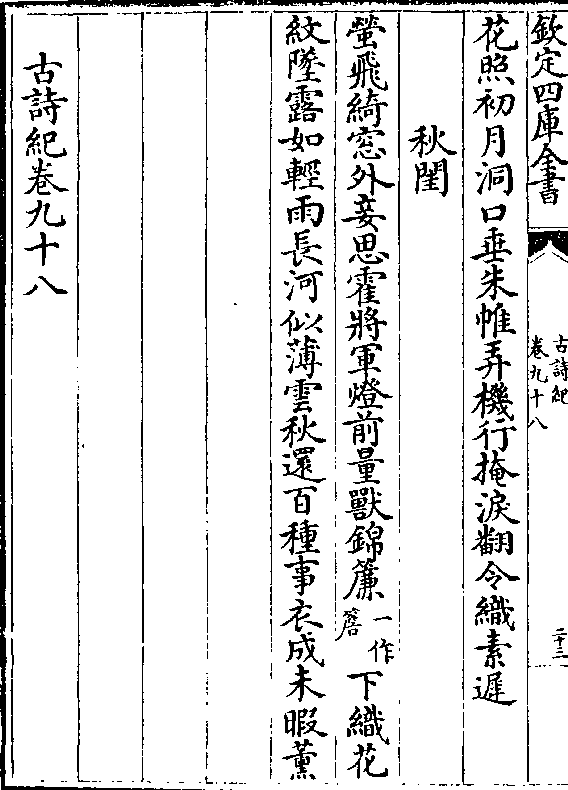 欽定四庫全書
古詩紀
卷九十八
二十三
花照初月洞口垂朱帷弄機行掩淚翻令織素遲
秋閨
螢飛綺窓外妾思霍將軍燈前量獸錦簾一作簷下織花
紋墜露如輕雨長河似薄雲秋還百種事衣成未暇薰
古詩紀卷九十八